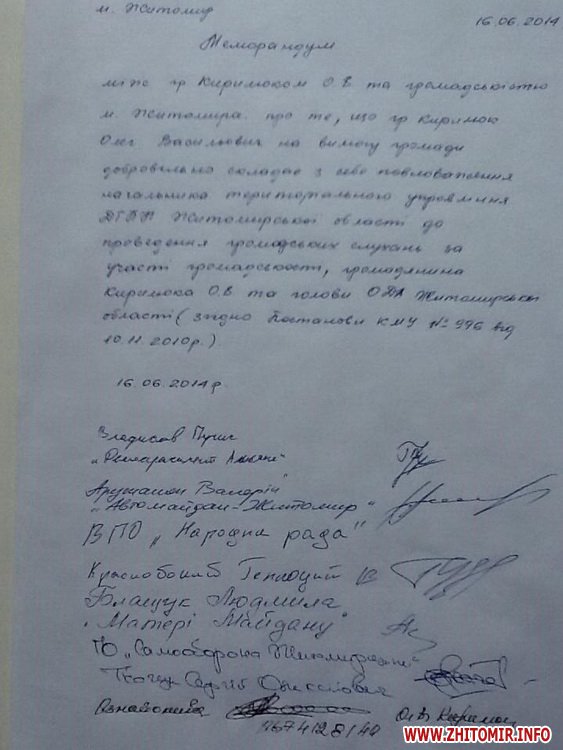 м. Житомир
16.06.2014
Меморандум
між гр Киримюком О.В. та громадськістю
м. Житомира про те, що гр Киримюк
Олег Васильович на вимогу громади
добровільно складає з себе повноваження
начальника територіального управління
Житомирської області до
проведення громадських слухань за
участі громадськості, громадянина
Киримюка О.В. та голови ОДА Житомирської
області (згідно Постанови КМУ № 996 від
10.11.2010р.)
16.06.2014р.
Владислав
Валерій
"Автомайдан-Житомир"
ВПО "Народна рада"
Людмила
"Матері Майдану"
ГО "Самооборона Житомирщини"
Сергій
О.В.
WWW.ZHITOMIR.INFO